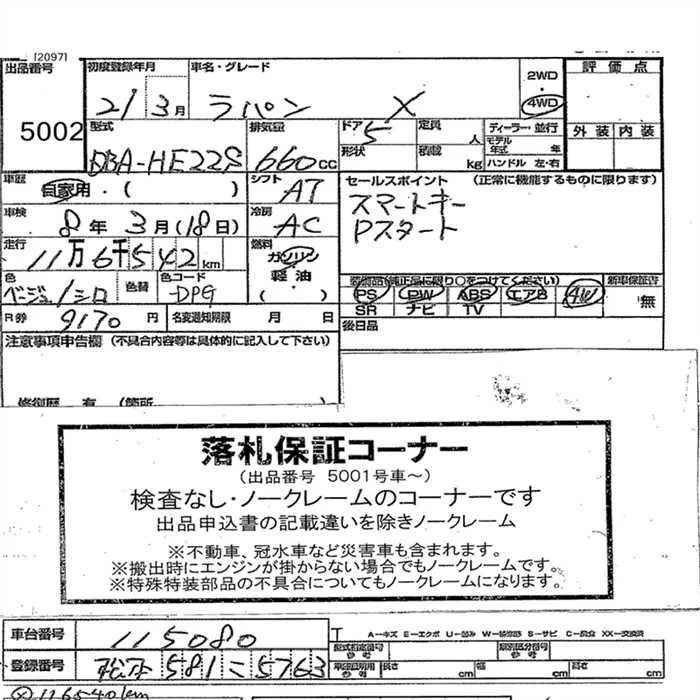 [2097]
出品番号 5002
初度登録年月 21年3月
車名・グレード ラパン X
2WD・4WD
評価点
外装 内装
型式 DBA-HE22S
排気量 660cc
ドア 5
形状
定員 人
積載 kg
ディーラー・並行
モデル年式 年
ハンドル 左・右
車歴 自家用・( )
シフト AT
セールスポイント (正常に機能するものに限ります)
スマートキー
Pスタート
車検 8年3月(18日)
冷房 AC
走行 11万6千542km
燃料 ガソリン 軽油 ( )
色 ベージュ/シロ
色替
色コード -DPG
装備品(純正品に限り○をつけてください)
新車保証書 無
PS PW ABS エアB AW
SR ナビ TV
R券 9170円
名変通知期限 月 日
後日品
注意事項申告欄 (不具合内容等は具体的に記入して下さい)
修復歴 有 (箇所
落札保証コーナー
(出品番号 5001号車~)
検査なし・ノークレームのコーナーです
出品申込書の記載違いを除きノークレーム
※不動車、冠水車など災害車も含まれます。
※搬出時にエンジンが掛からない場合でもノークレームです。
※特殊特装部品の不具合についてもノークレームになります。
車台番号 115080
A-キズ E-エクボ U-凹み W-補修跡 S-サビ C-腐食 XX-交換済
登録番号 松本581に5763
型式指定番号 参考
類別区分番号 参考
車検証明用 参考 長さ cm 幅 cm 高さ cm
116540km